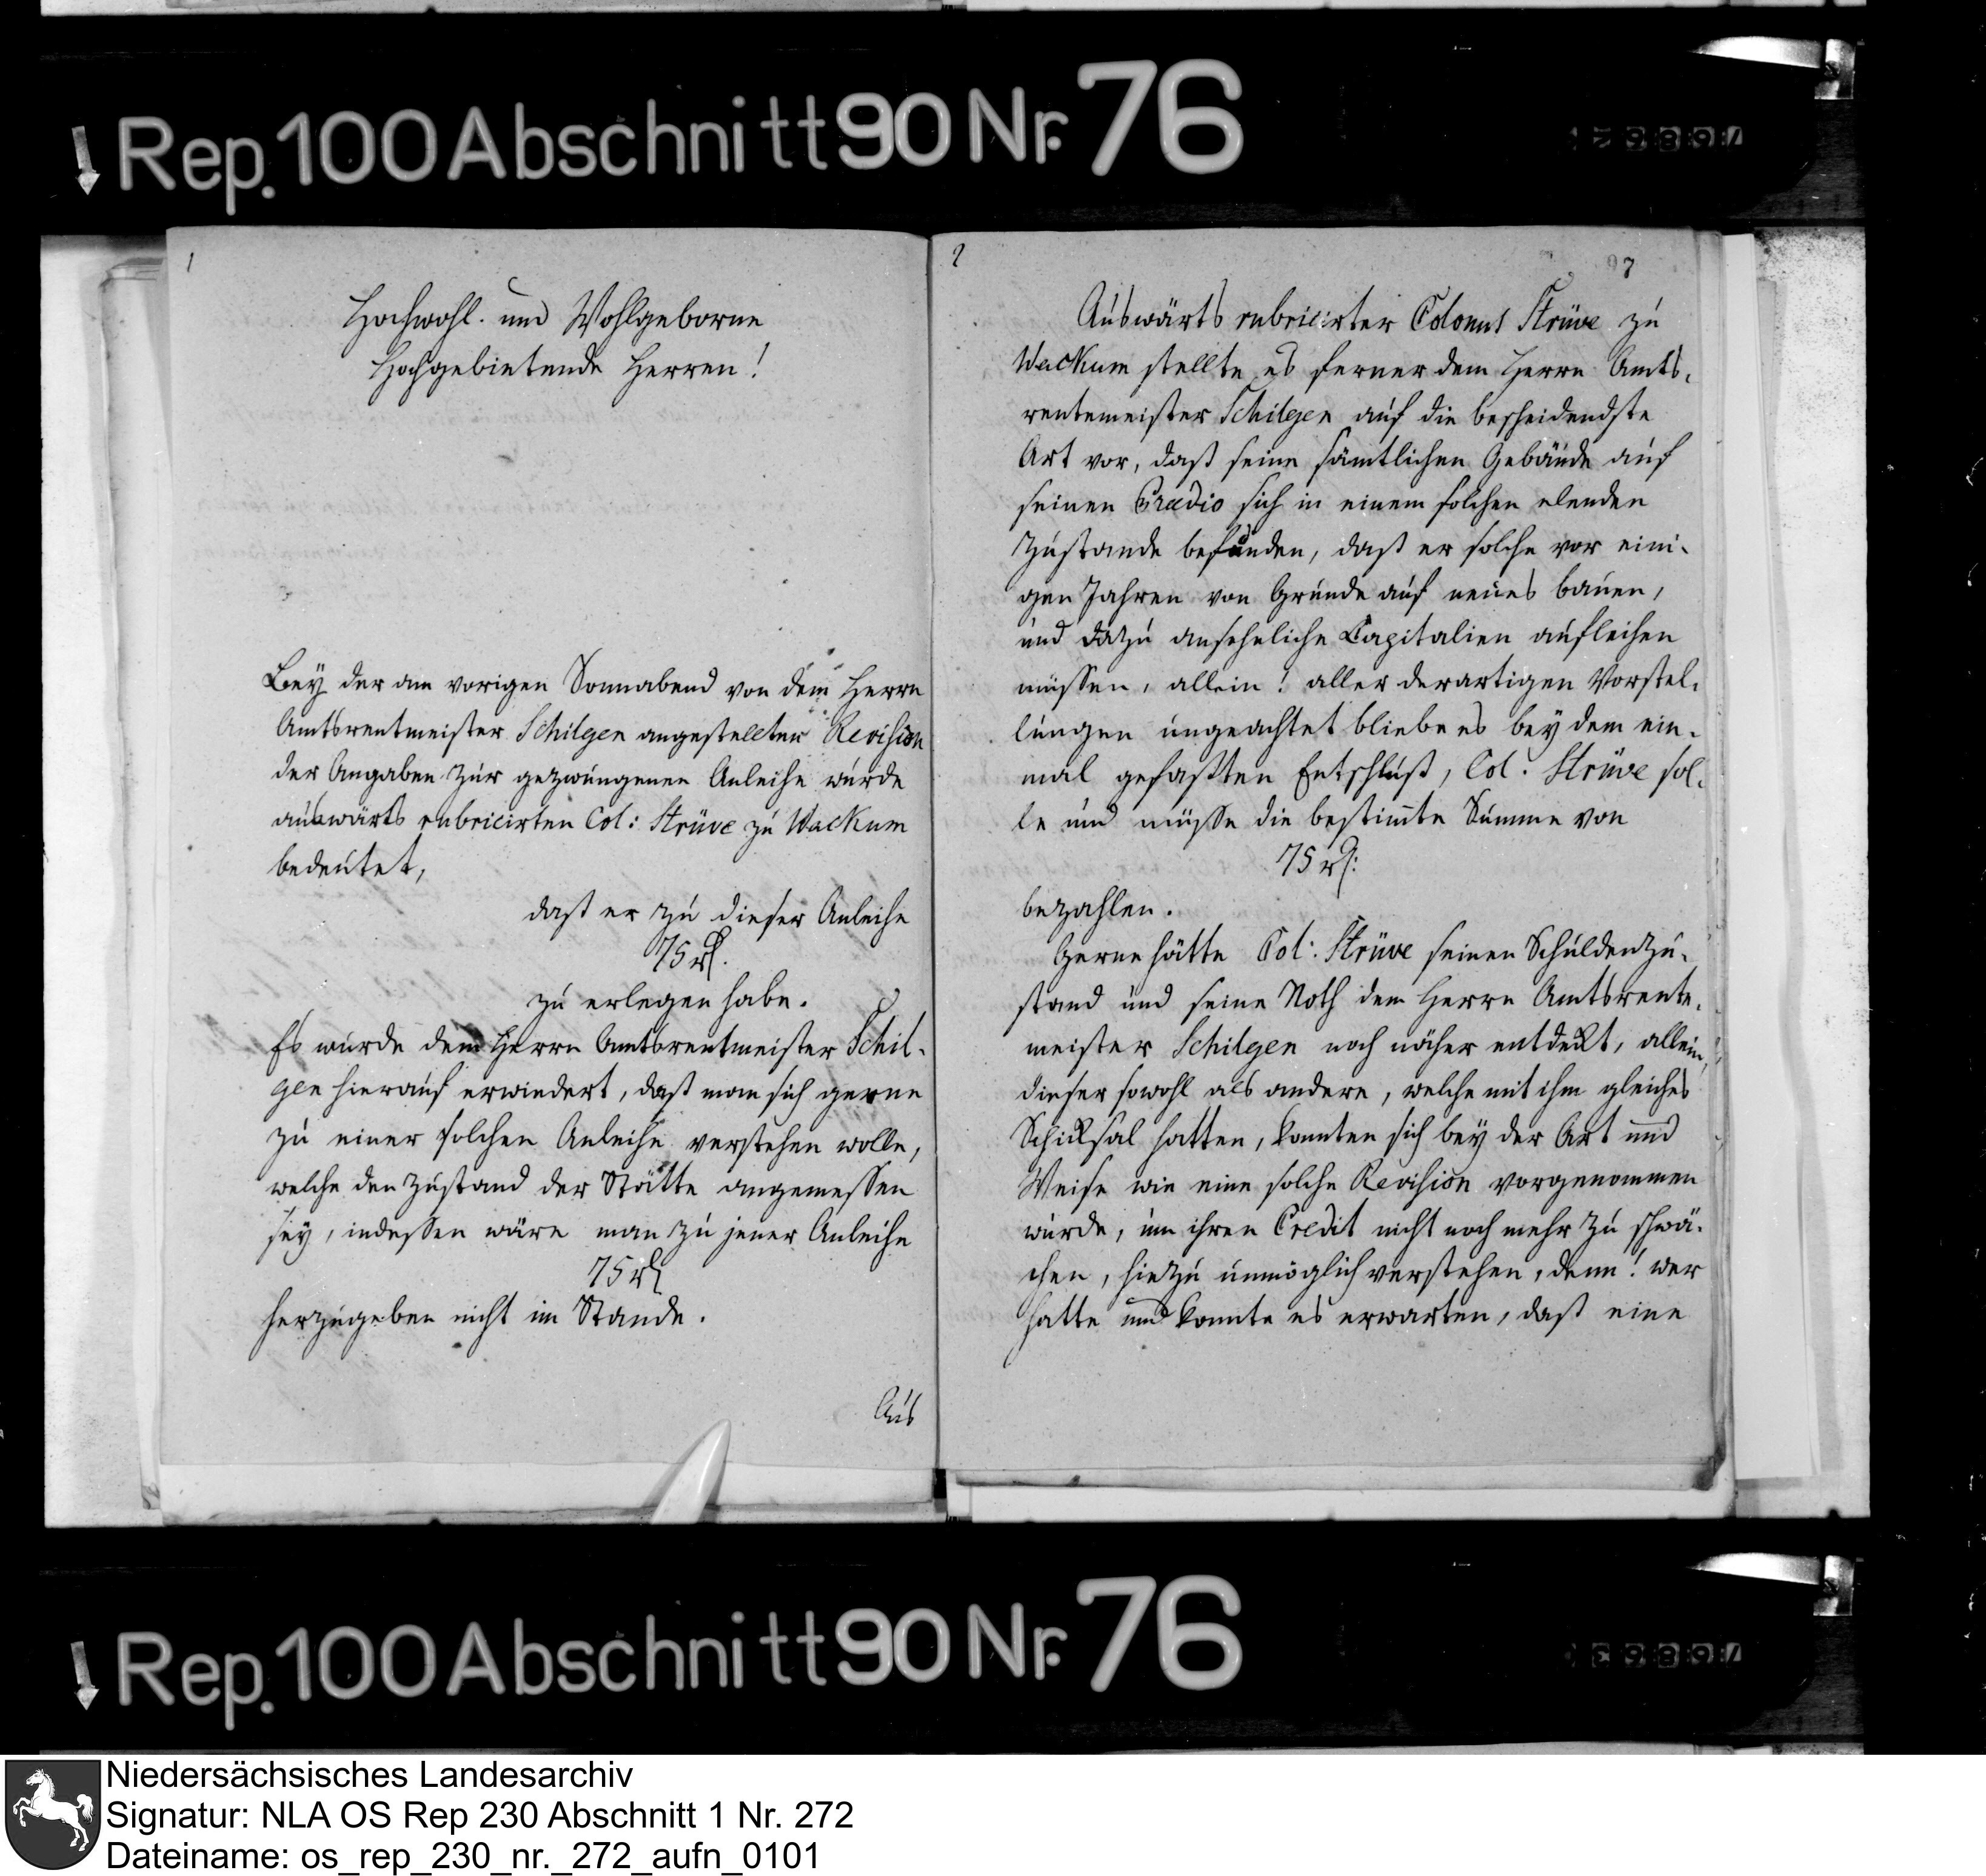 Rep. 100 Abschnitt 90 Nr. 76
1
Hochwohl. und Wohlgeborne
Hochgebietende Herren!
Bey der am vorigen Sonnabend von dem Herrn
Amtsrentmeister Schilgen angestellter Revision
der Angaben zur gezwungenen Anleihe wurde
auswärts rubricirten Col: Strüve zu Wackum
bedeutet,
daß er zu dieser Anleihe
75 rl.
zu erlegen habe.
Es wurde dem Herrn Amtsrentmeister Schil-
gen hierauf erwiedert, daß man sich gerne
zu einer solchen Anleihe verstehen wolle,
welche den Zustand der Stätte angemessen
sey, indessen wäre man zu jener Anleihe
75 rl
herzugeben nicht im Stande.
Aus
2
97
Auswärts rubricirter Colonus Strüve zu
Wackum stellte es ferner dem Herrn Amts-
rentemeister Schilgen auf die bescheidendste
Art vor, daß seine sämtlichen Gebäude auf
seinen Praedio sich in einem solchen elenden
Zustande befunden, daß er solche vor eini-
gen Jahren von Grunde auf neues bauen,
und dazu ansehnliche Capitalien aufleihen
müssen, allein! aller derartigen Vorstel-
lungen ungeachtet bliebe es bey dem ein-
mal gefaßten Entschluß, Col. Strüve sol-
le und müsse die bestimte Summe von
75 rl:
bezahlen.
Gerne hätte Col: Strüve seinen Schuldenzu-
stand und seine Noth dem Herrn Amtsrente-
meister Schilgen noch näher entdekt, allein,
dieser sowohl als andere, welche mit ihm gleiches
Schiksal hatten, konnten sich bey der Art und
Weise wie eine solche Revision vorgenommen
wurde, um ihren Credit nicht noch mehr zu schwä-
chen, hiezu unmöglich verstehen, denn! wer
hatte und konnte es erwarten, daß eine
Rep. 100 Abschnitt 90 Nr. 76
Niedersächsisches Landesarchiv
Signatur: NLA OS Rep 230 Abschnitt 1 Nr. 272
Dateiname: os_rep_230_nr._272_aufn_0101